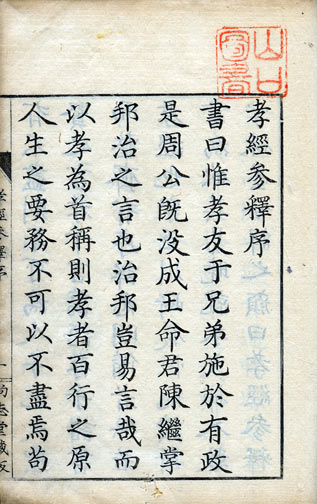 山口
孝經參釋序
書曰惟孝友于兄弟施於有政
是周公旣没成王命君陳繼掌
邦治之言也治邦豈易言哉而
以孝為首稱則孝者百行之原
人生之要務不可以不盡焉苟
孝經參釋序 一